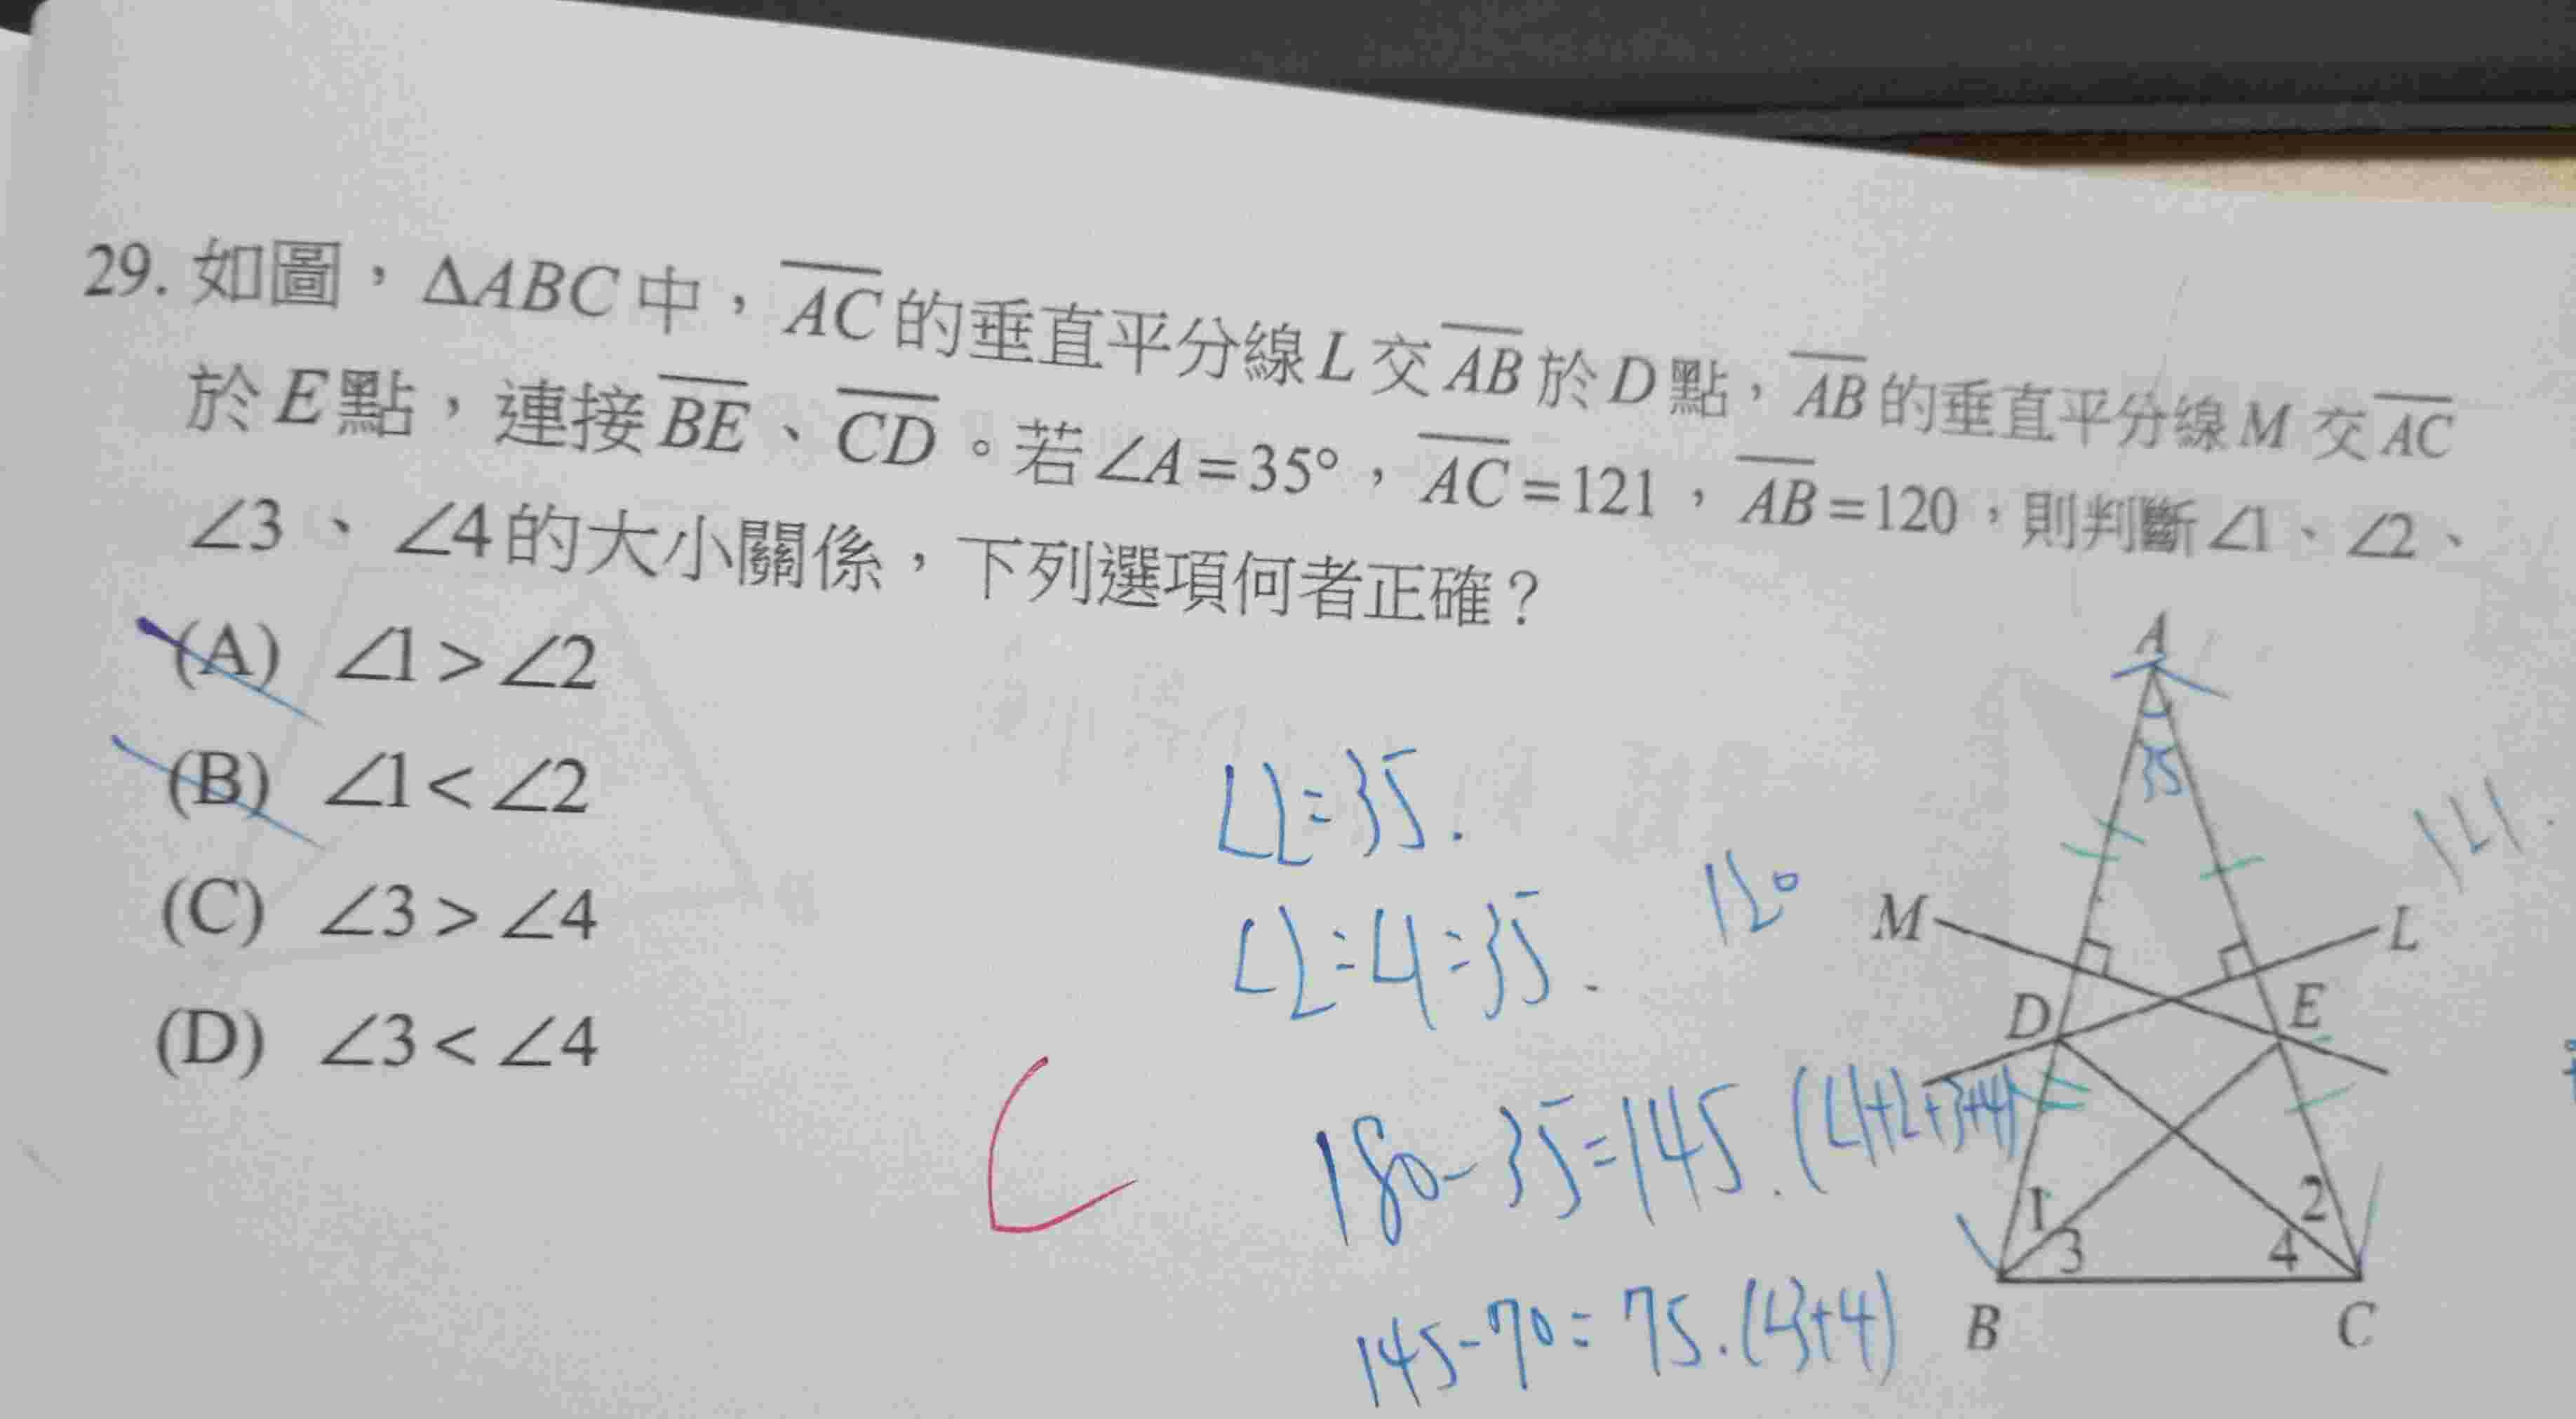 29. 如圖，ΔABC中，AC的垂直平分線L交AB於D點，AB的垂直平分線M交AC
於E點，連接BE、CD。若∠A=35°，AC=121，AB=120，則判斷∠1、∠2、
∠3、∠4的大小關係，下列選項何者正確？
(A) ∠1>∠2
(B) ∠1<∠2
(C) ∠3>∠4
(D) ∠3<∠4
∠2=35.
∠2=∠1=35.
180-35=145.(∠1+2+3+4)
145-70=75.(∠3+4)
C
A
35
120
121
M
L
D
E
1
2
3
4
B
C